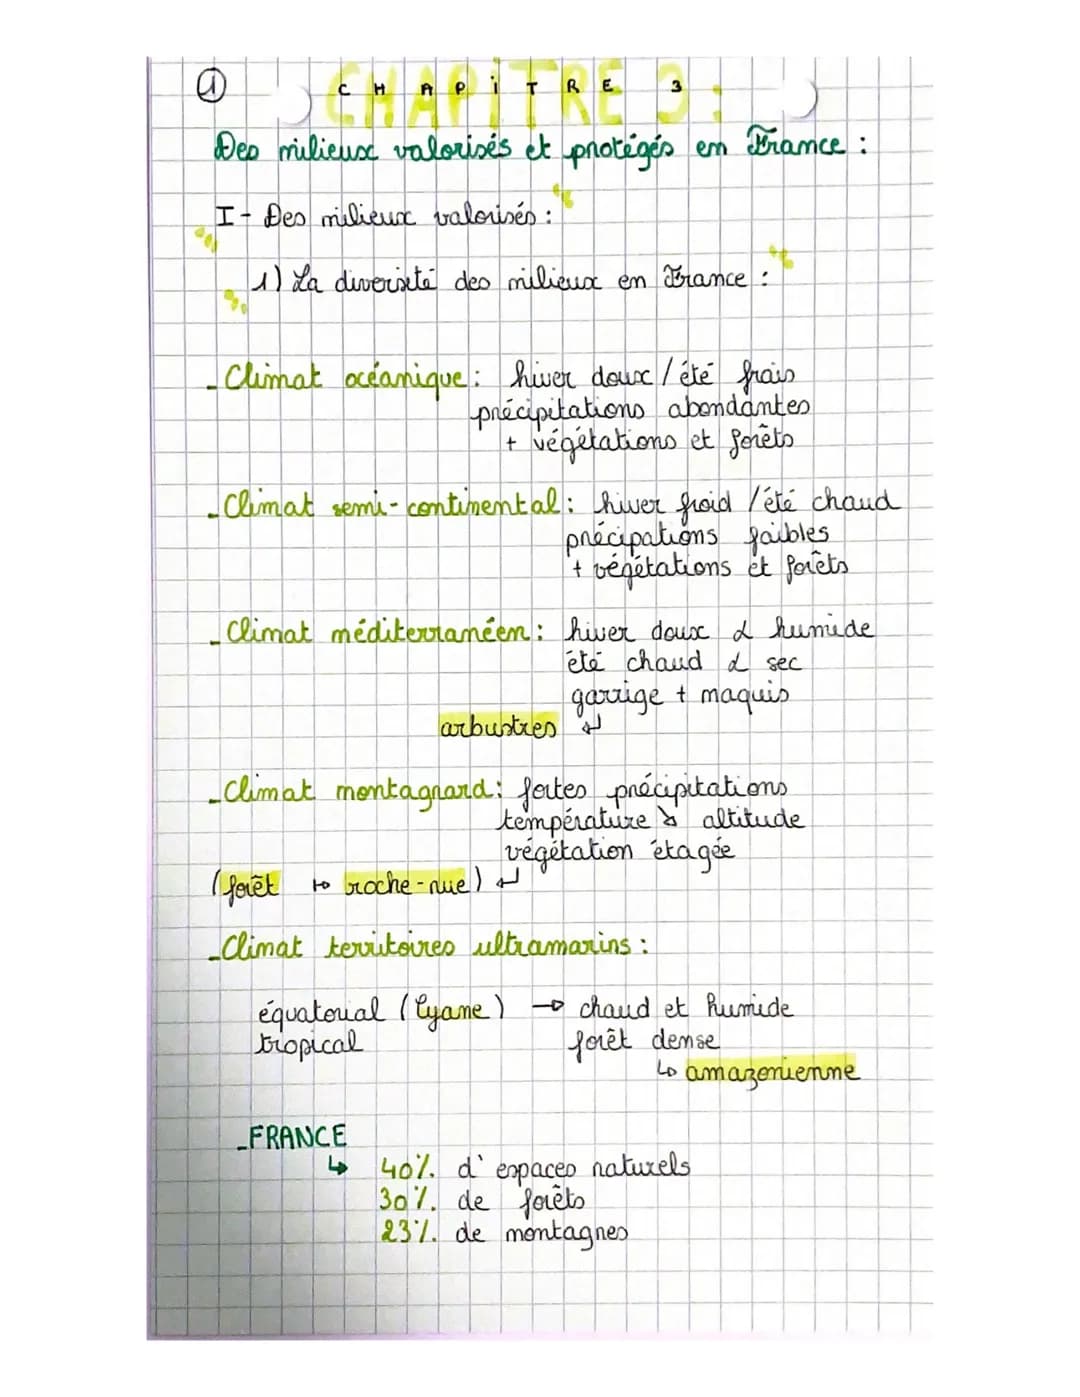 ① CHAPiTRE 3 :
Des milieux valorisés et protégés en France :
I- Des milieux valorisés :
1) La diversité des milieux en France :
- Climat océanique : hiver doux / été frais
précipitations abondantes
+ végétations et forêts
- Climat semi-continental : hiver froid / été chaud
précipations faibles
+ végétations et forêts
- Climat méditerranéen : hiver doux & humide
été chaud & sec
garrige + maquis
arbustres ↲
- Climat montagnard : fortes précipitations
température ↘ altitude
végétation étagée
(forêt → roche-nue) ↲
- Climat territoires ultramarins :
équatorial (Gyane) → chaud et humide
tropical forêt dense
↳ amazonienne
- FRANCE
↳ 40% d'espaces naturels
30% de forêts
23% de montagnes